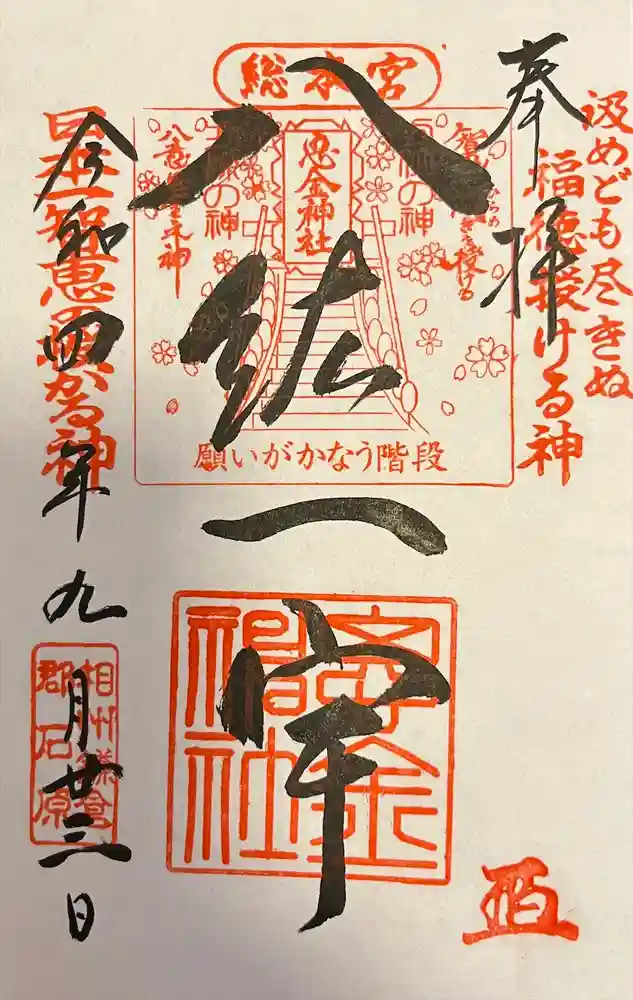 奉拝
汲めども尽きぬ
福徳授ける神
総本宮
思金神社
授ける
の神
の神
願いがかなう階段
八紘一宇
思金神社
日本一智恵の授かる神
令和四年九月廿三日
相州鎌倉
郡石原